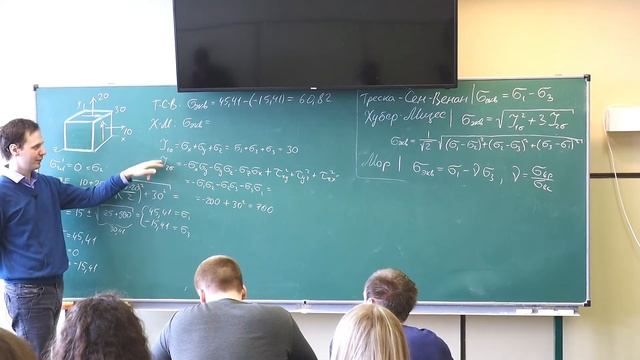 y 20
30
10
x
z
Т-С-В: σэкв = 45,41-(-15,41) = 60,82
Х-М: σэкв =
I1σ = σx+σy+σz = σ1+σ2+σ3 = 30
= -σxσy-σyσz-σzσx+τ²xy+τ²yz+τ²zx
= -σ1σ2-σ2σ3-σ3σ1 =
= -200 + 30² = 700
= 0 = σ2
+ 30² =
45,41 = σ1
-15,41 = σ3
30,41
= 45,41
= 0
= -15,41
Треска-Сен-Венан | σэкв = σ1 - σ3
Хубер-Мизес | σэкв = √I²1σ + 3I2σ
σэкв = 1/√2 √(σ1-σ2)²+(σ2-σ3)²+(σ3-σ1)²
Мор | σэкв = σ1 - νσ3, ν = σвр/σвс